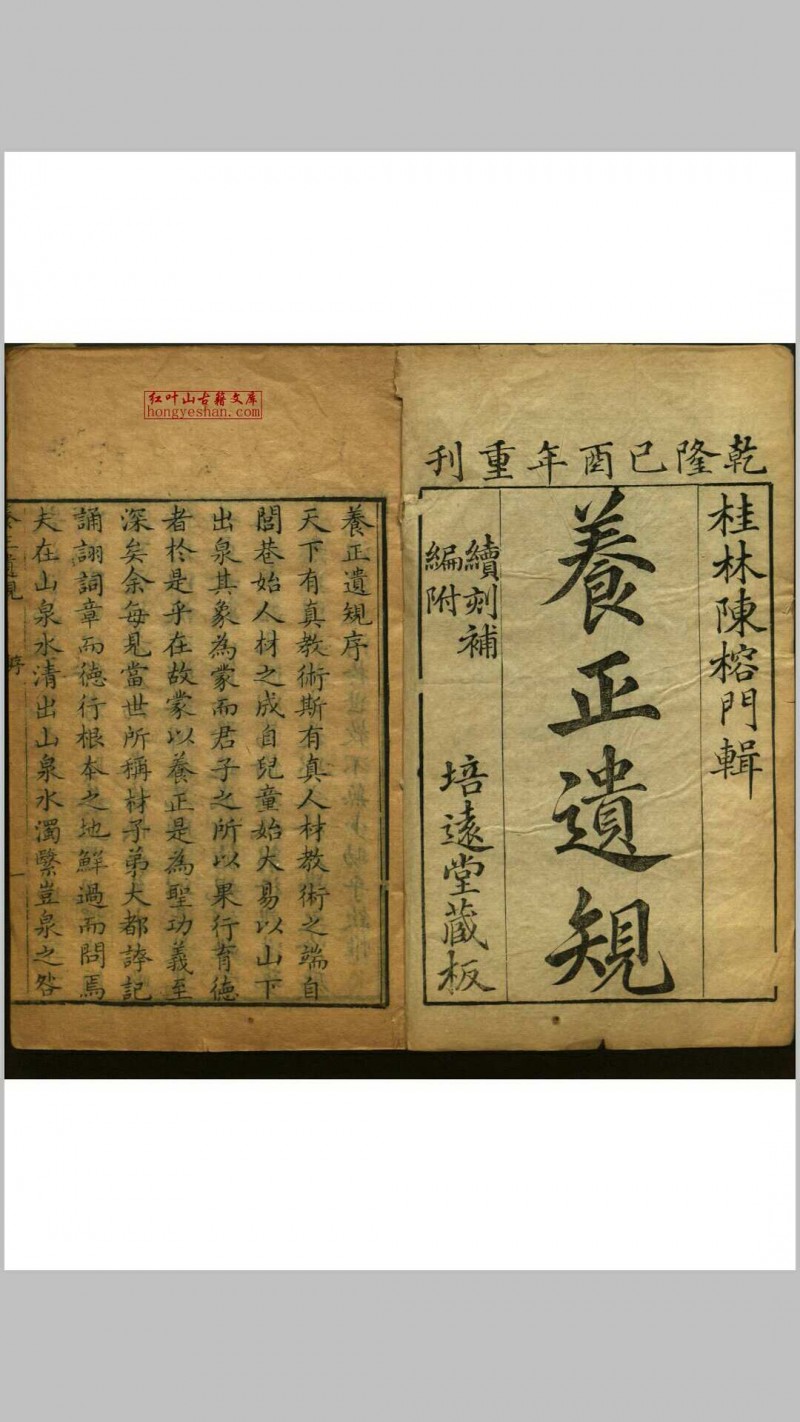 乾隆己酉年重刊
桂林陳榕門輯
養正遺規
續刻補
編附
培遠堂藏板
红叶山古籍文库
hongyeshan.com
養正遺規序
天下有真教術斯有真人材教術之端自
閭巷始人材之成自兒童始大易以山下
出泉其象為蒙而君子之所以果行育德
者於是乎在故蒙以養正是為聖功義至
深矣余每見當世所稱材子弟大都誇記
誦詡詞章而德行根本之地鮮過而問焉
夫在山泉水清出山泉水濁繄豈泉之咎
序
一